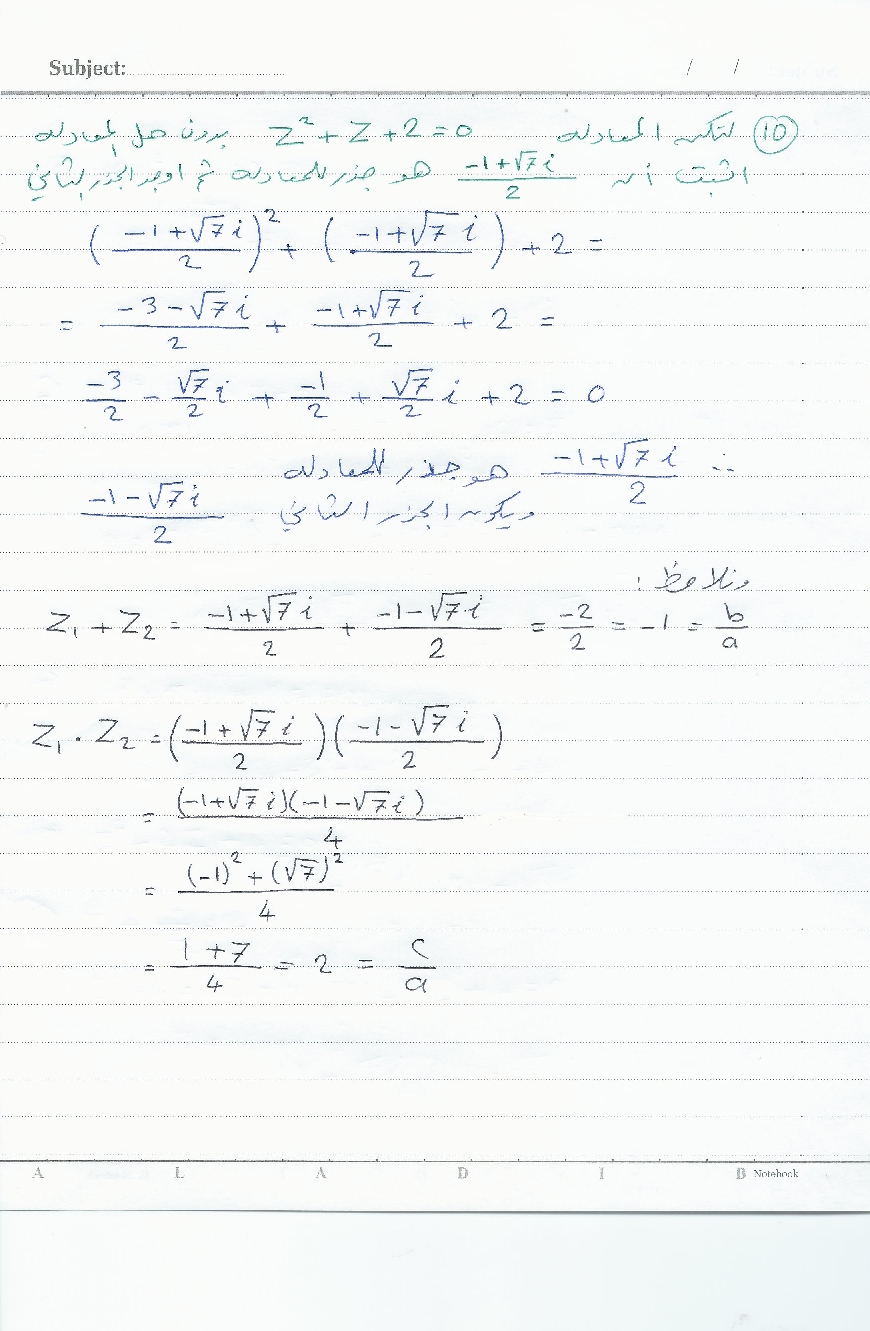 Subject: / /
⑩ لتكن المعادلة z² + z + 2 = 0 بدون حل المعادلة
اثبت أن (-1+√7 i)/2 هو جذر للمعادلة ثم اوجد الجذر الثاني
((-1+√7 i)/2)² + ((-1+√7 i)/2) + 2 =
= (-3-√7 i)/2 + (-1+√7 i)/2 + 2 =
-3/2 - √7/2 i + -1/2 + √7/2 i + 2 = 0
∴ (-1+√7 i)/2 هو جذر للمعادلة
ويكون الجذر الثاني (-1-√7 i)/2
ونلاحظ:
Z₁ + Z₂ = (-1+√7 i)/2 + (-1-√7 i)/2 = -2/2 = -1 = b/a
Z₁ · Z₂ = ((-1+√7 i)/2)((-1-√7 i)/2)
= (-1+√7 i)(-1-√7 i)/4
= ((-1)² + (√7)²)/4
= (1+7)/4 = 2 = c/a
A L A D I B Notebook